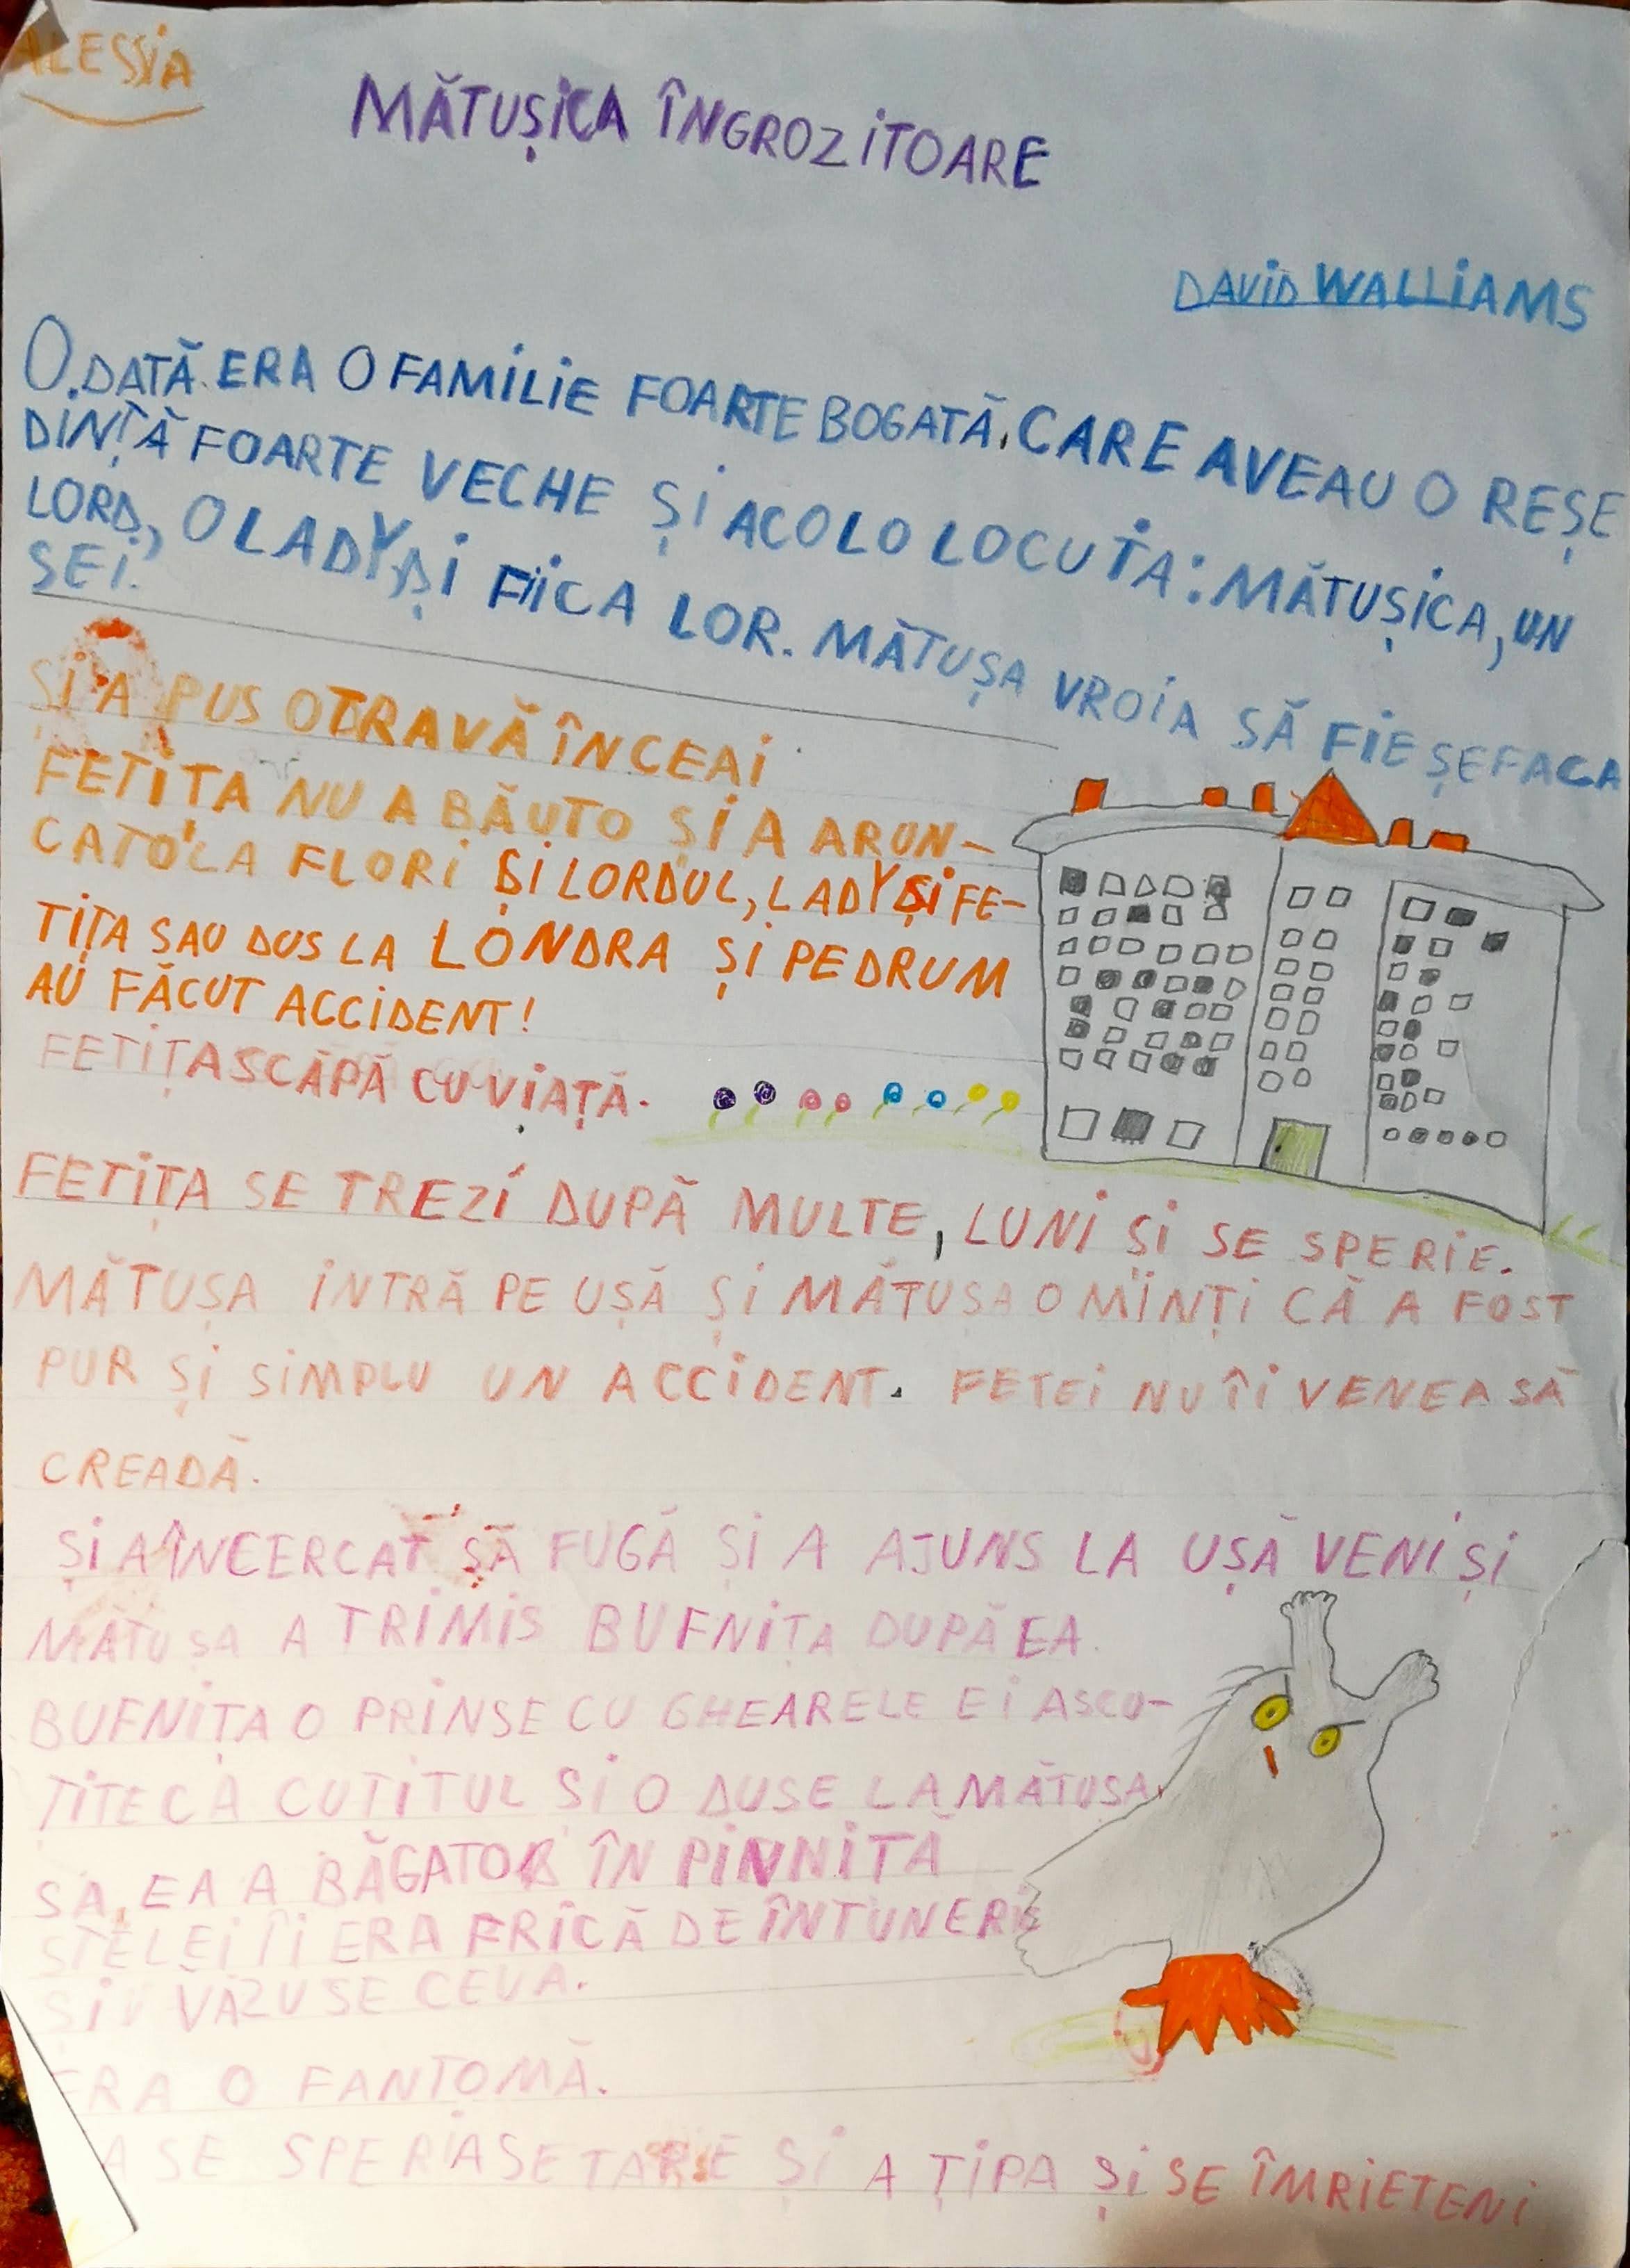 ALESSIA
MĂTUȘICA ÎNGROZITOARE
DAVID WALLIAMS
O.DATĂ ERA O FAMILIE FOARTE BOGATĂ, CARE AVEAU O REȘE
DINȚĂ FOARTE VECHE ȘI ACOLO LOCUIA: MĂTUȘICA, UN
LORD, O LADY ȘI FIICA LOR. MĂTUȘA VROIA SĂ FIE ȘEFA CA
SEI.
ȘI A PUS OTRAVĂ ÎN CEAI
FETIȚA NU A BĂUTO ȘI A ARUN-
CATO LA FLORI ȘI LORDUL, LADY ȘI FE-
TIȚA SAU DUS LA LONDRA ȘI PE DRUM
AU FĂCUT ACCIDENT!
FETIȚA SCĂPĂ CU VIAȚĂ.
FETIȚA SE TREZI DUPĂ MULTE, LUNI ȘI SE SPERIE.
MĂTUȘA INTRĂ PE UȘĂ ȘI MĂTUȘA O MINȚI CĂ A FOST
PUR ȘI SIMPLU UN ACCIDENT. FETEI NU ÎI VENEA SĂ
CREADĂ.
ȘI A ÎNCERCAT SĂ FUGĂ ȘI A AJUNS LA UȘĂ VENI ȘI
MĂTUȘA A TRIMIS BUFNIȚA DUPĂ EA.
BUFNIȚA O PRINSE CU GHEARELE EI ASCU-
ȚITE CA CUȚITUL ȘI O DUSE LA MĂTUȘA
SA, EA A BĂGATO ÎN PINNIȚĂ
STELEI ÎI ERA FRICĂ DE ÎNTUNERI
ȘI VĂZUSE CEVA.
ERA O FANTOMĂ.
A SE SPERIASE TARE ȘI A ȚIPA ȘI SE ÎMRIETENI